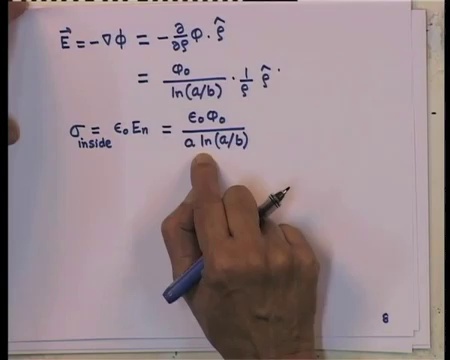 E⃗ = -∇ϕ = - ∂/∂ρ ϕ · ρ̂
= ϕ₀/ln(a/b) · 1/ρ ρ̂
σ inside = ϵ₀ Eₙ = ϵ₀ϕ₀/a ln(a/b)
8